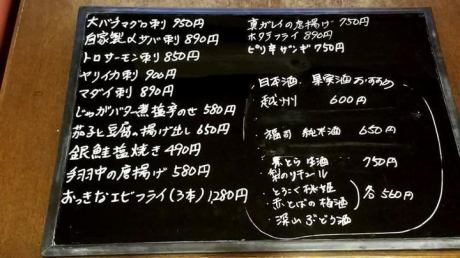 大バチマグロ刺 950円
自家製〆サバ刺 890円
トロサーモン刺 850円
ヤリイカ刺 900円
マダイ刺 890円
じゃがバター煮塩辛のせ 580円
茄子と豆腐の揚げ出し 650円
銀鮭塩焼き 490円
手羽中の唐揚げ 580円
おっきなエビフライ(3本) 1,280円
真ガレイの唐揚げ 750円
ホタテフライ 890円
ピリ辛ザンギ 750円
日本酒 果実酒 おすすめ
越州 600円
福司 純米酒 650円
生酒 750円
・梨のリキュール
・とろこく桃姫
・赤とんぼの梅酒
・深山ぶどう酒
各560円